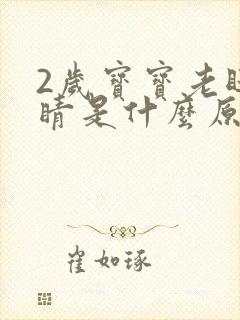 2歲寶寶老
睛是什麼原
崔如琢